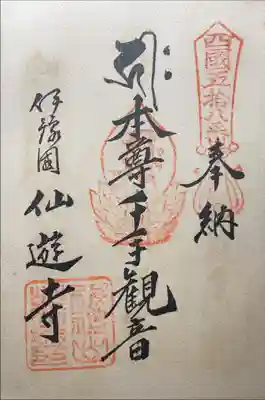 四國五拾八番
奉納
本尊千手觀音
伊豫國
仙遊寺